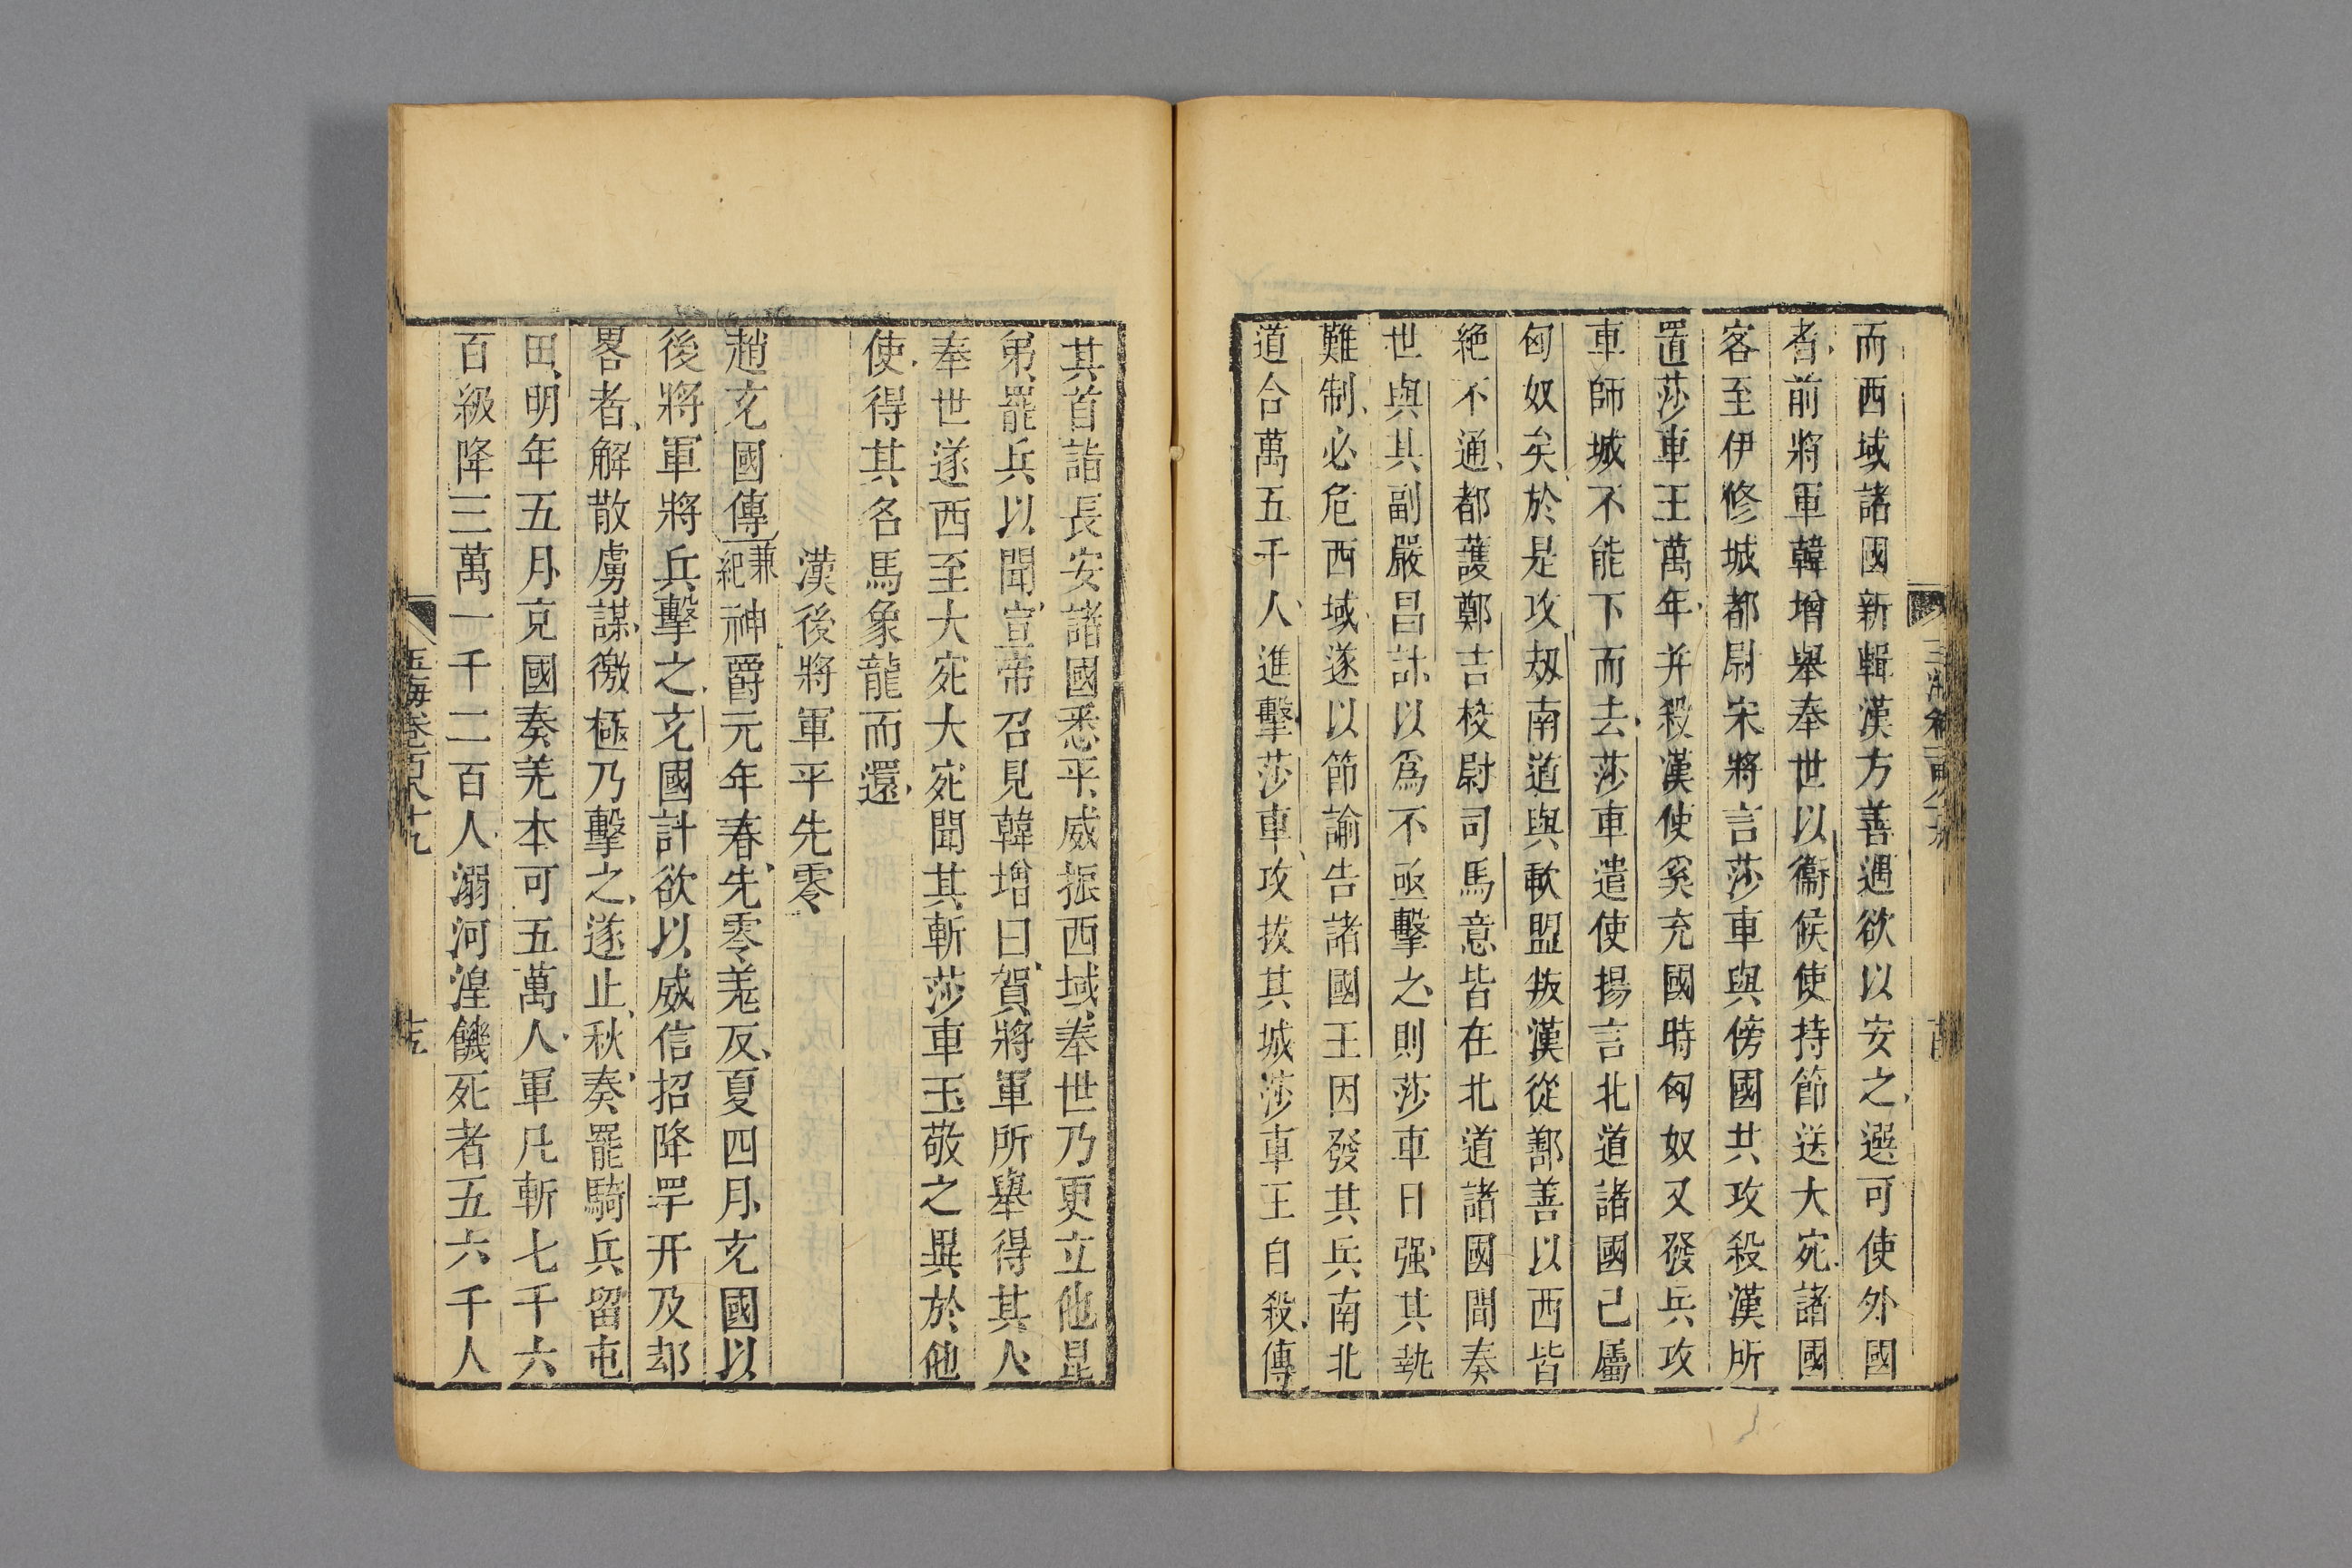 而西域諸國新輯漢方善遇欲以安之選可使外國
者前將軍韓增舉奉世以衞候使持節送大宛諸國
客至伊修城都尉宋將言莎車與傍國共攻殺漢所
置莎車王萬年并殺漢使奚充國時匈奴又發兵攻
車師城不能下而去莎車遣使揚言北道諸國已屬
匈奴矣於是攻刼南道與歃盟叛漢從鄯善以西皆
絶不通都護鄭吉校尉司馬意皆在北道諸國間奏
世與其副嚴昌計以爲不亟擊之則莎車日强其埶
難制必危西域遂以節諭告諸國王因發其兵南北
道合萬五千人進擊莎車攻拔其城莎車王自殺傳
其首詣長安諸國悉平威振西域奉世乃更立他昆
弟罷兵以聞宣帝召見韓增曰賀將軍所舉得其人
奉世遂西至大宛大宛聞其斬莎車玉敬之異於他
使得其名馬象龍而還
漢後將軍平先零
趙充國傳兼紀神爵元年春先零羌反夏四月充國以
後將軍將兵擊之充國計欲以威信招降罕幵及刧
畧者解散虜謀徼極乃擊之遂止秋奏罷騎兵留屯
田明年五月充國奏羌本可五萬人軍凡斬七千六
百級降三萬一千二百人溺河湟饑死者五六千人
玉海卷一百八十九